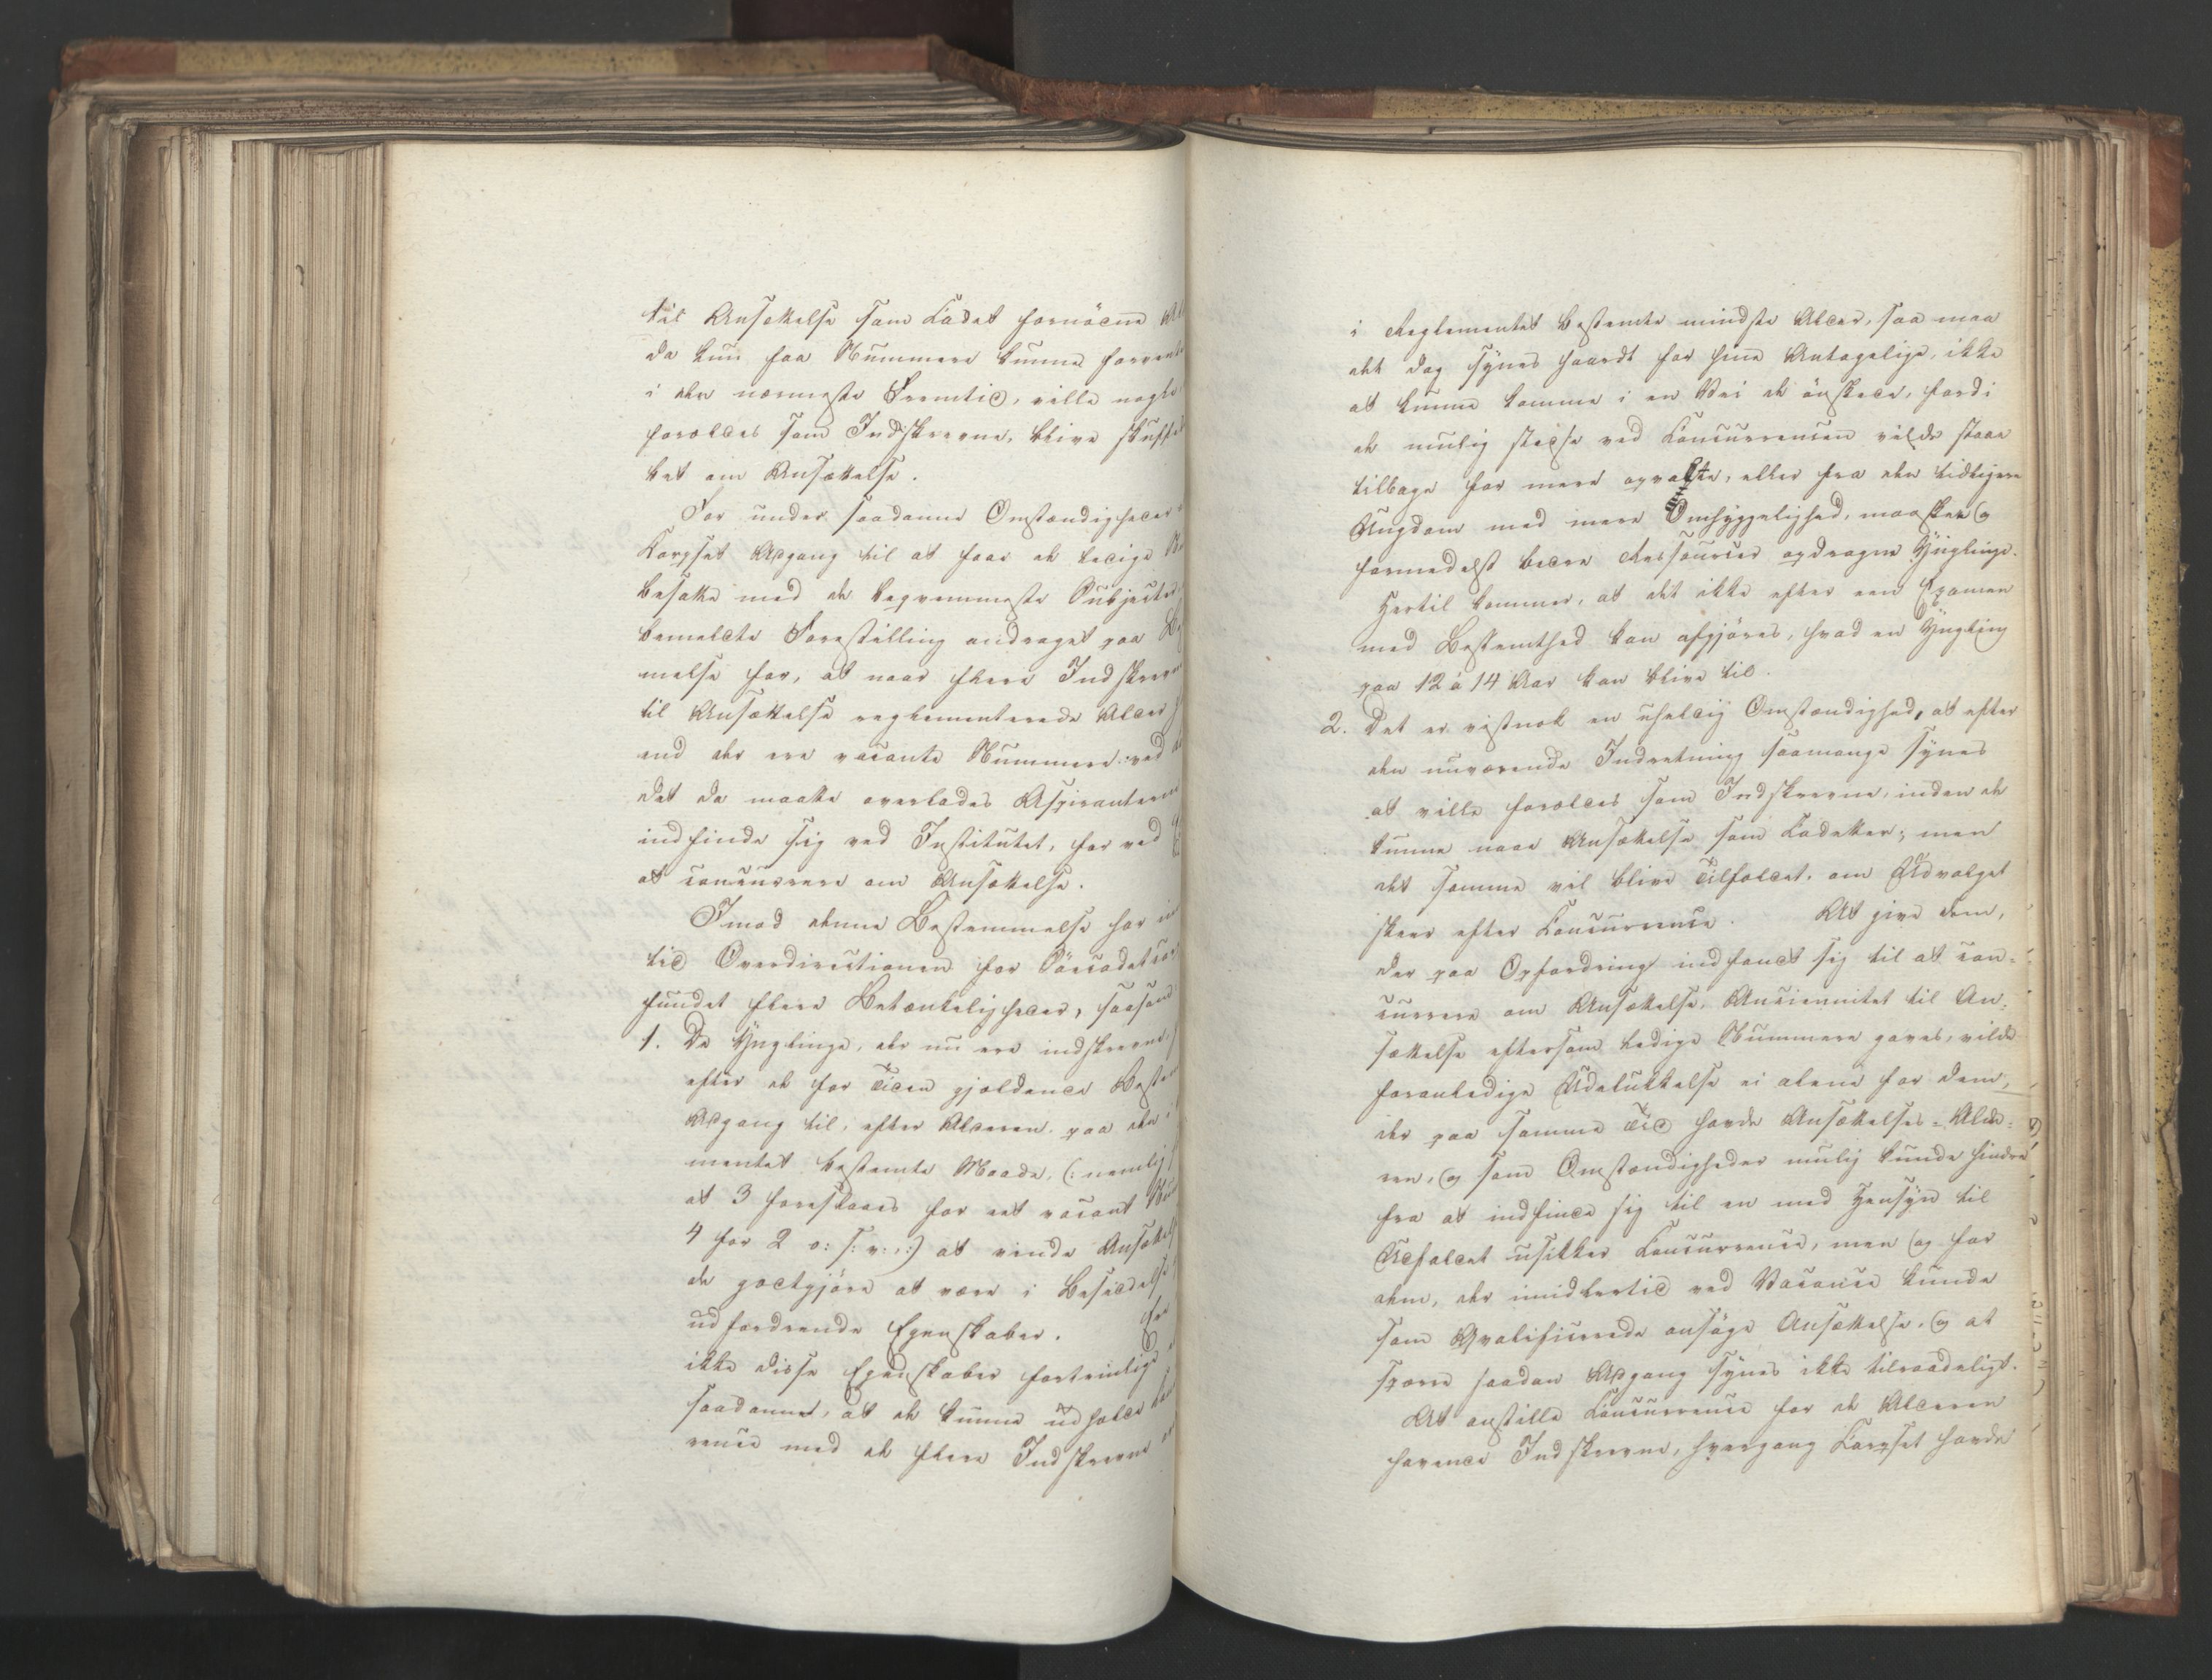 til Ansættelse som Kadet fornødne
da kun faa Nummere kunne forvent
i den nærmeste Fremtid, ville nogle
forældes som Indskrevne, blive skuffed
bet om Ansættelse.
For under saadanne Omstændigheder
Korpset Adgang til at faae de ledige
besatte med de beqvemmeste Subjecter
bemeldte Forestilling andraget paa
melse for, at naar flere Indskrevne
til Ansættelse reglementerede Alder
end der ere vacante Nummere ved
det da maatte overlades Aspiranterne
indfinde sig ved Institutet, for ved
at concurrere om Ansættelse.
Imod denne Bestemmelse har
tid Overdirectionen for Söecadet
fundet flere Betænkeligheder, saasom
1. De Ynglinge, der nu ere indskrevne,
efter de for Tiden gjældende Bestem
Adgang til, efter Alderen paa den i
mentet bestemte Maade, (: nemlig
at 3 foreslaaes for eet vacant
4 for 2 o: s: v: :) at vinde Ansættel
de godtgjöre at være i Besiddelse
udfordrende Egenskaber. Er
ikke disse Egenskaber fortrinlige
saadanne, at de kunne udholde
rence med de flere Indskrevne
i Reglementet bestemte mindste Alder, saa maa
det dog synes haardt for hine Antagelige, ikke
at kunne komme i en Vei de önskede, fordi
de mulig stedse ved Concurrencen vilde staae
tilbage for mere opvakte, eller fra den tidligere
Ungdom med mere Omhyggelighed, maaskee og
formedelst bedre Ressourcer opdragne Ynglinge.
Hertil kommer, at det ikke efter een Examen
med Bestemthed kan afgjöres, hvad en Yngling
paa 12 à 14 Aar kan blive til.
2. Det er vistnok en uheldig Omstændighed, at efter
den nuværende Indretning saamange synes
at ville forældes som Indskrevne, inden de
kunne naae Ansættelse som Kadetter; men
det samme vil blive Tilfældet, om Udvalget
skeer efter Concurrence. At give dem,
der paa Opfordring indfandt sig til at con-
currere om Ansættelse, Anciennitet til An-
sættelse eftersom ledige Nummere gaves, vilde
foranledige Udelukkelse ei alene for dem,
der paa samme Tid havde Ansættelses-Alde-
ren, og som Omstændigheder mulig kunde hindre
fra at indfinde sig til en med Hensyn til
Udfaldet usikker Concurrence, men og for
dem, der imidlertid ved Vacance kunde
som Qvalificerede ansöge Ansættelse, og at
spærre saadan Adgang synes ikke tilraadeligt.
At anstille Concurrence for de Alderen
havende Indskrevne, hvergang Korpset havde